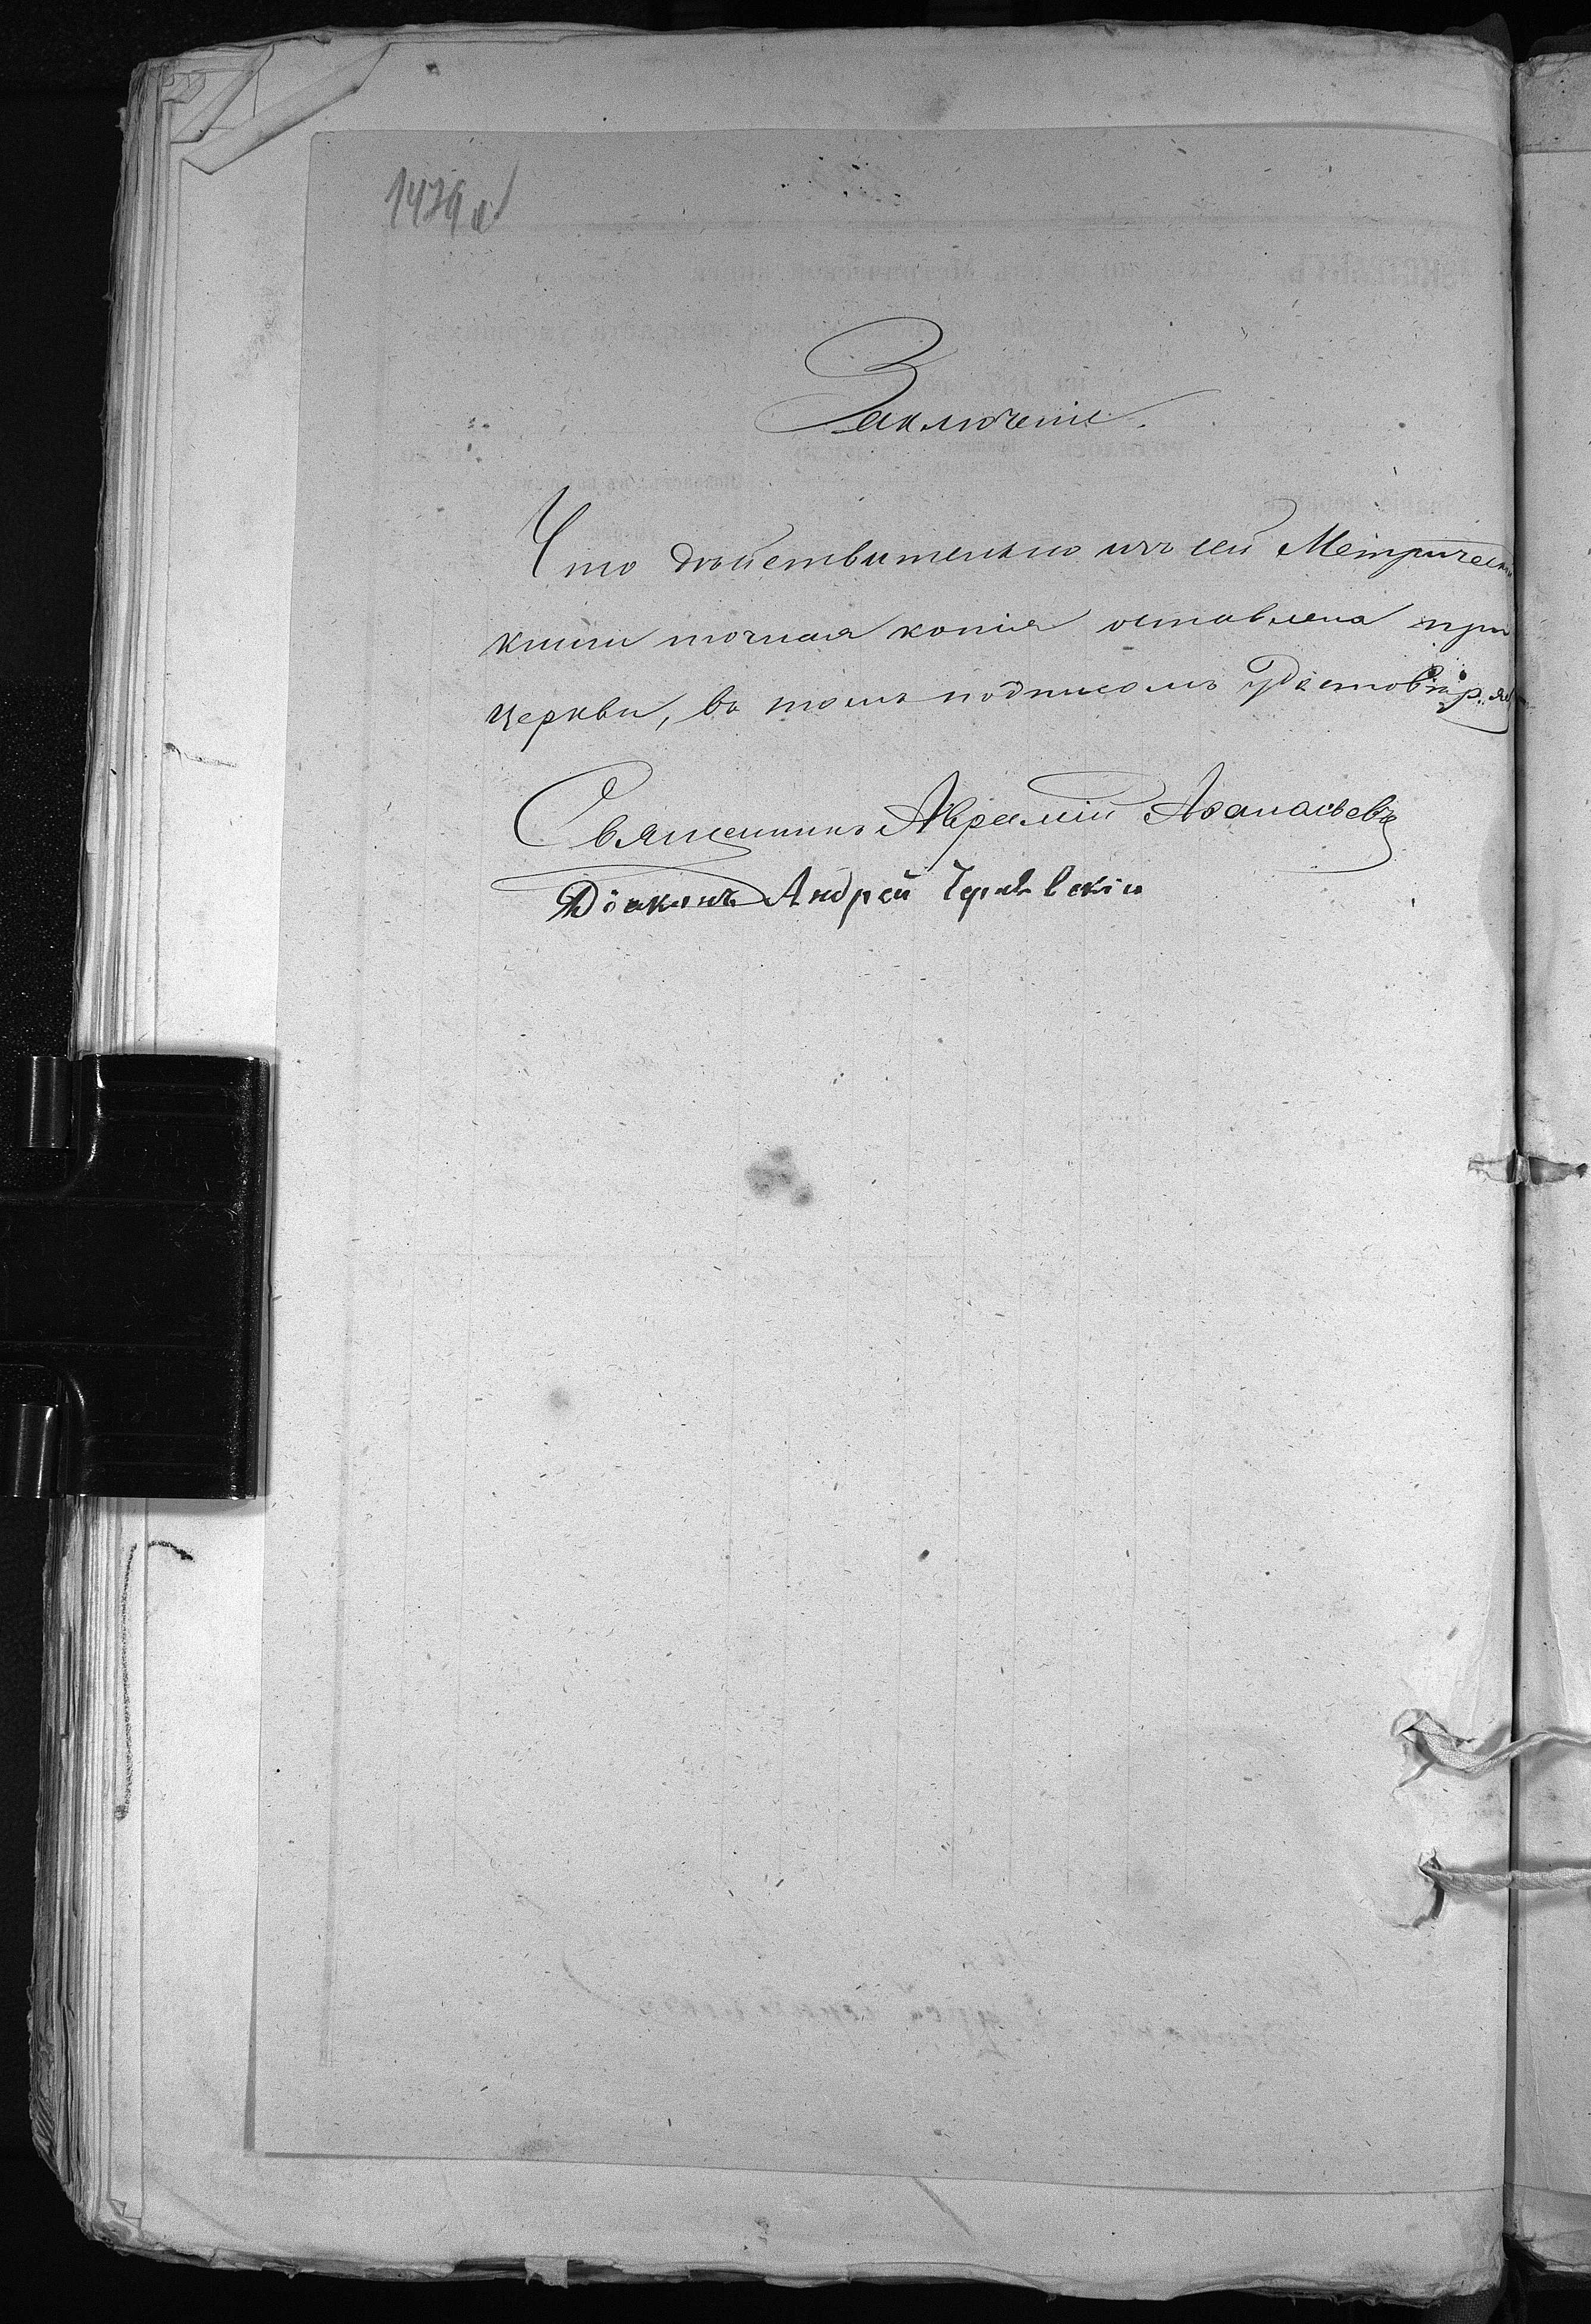 Заключеніе.
Что дѣйствительно изъ сей Метрической
книги точная копія оставлена при
церкви, въ томъ подписомъ удостовѣряемъ
Священникъ Аврамій Аѳанасьевъ
Діаконъ Андрей